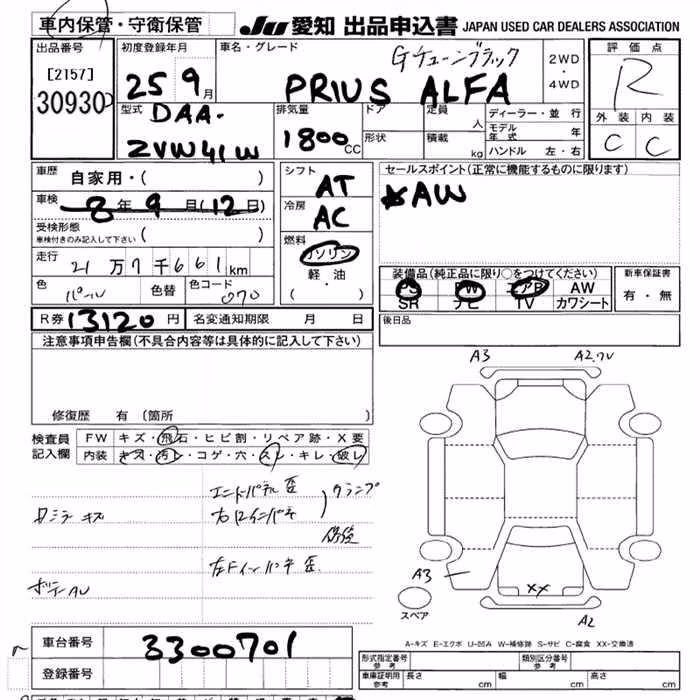 車内保管・守衛保管 JU 愛知 出品申込書 JAPAN USED CAR DEALERS ASSOCIATION
出品番号 初度登録年月 車名・グレード 2WD・4WD 評価点
[2157] 25 9月 Gチューンブラック R
30930 PRIUS ALFA
型式 排気量 ドア 定員 人 ディーラー・並行 外装 内装
DAA- 1800CC 形状 積載 kg モデル年式 年 C C
ZVW41W ハンドル 左・右
車歴 自家用・( ) シフト AT セールスポイント(正常に機能するものに限ります)
車検 8年9月(12日) 冷房 AC AW
受検形態 ( )
車検付きのみ記入して下さい
燃料 ガソリン
走行 21万7千661km 軽・油 装備品(純正品に限り○をつけてください) 新車保証書
色 パール 色替 色コード 070 ( ・ ) PS PW エアB AW 有・無
SR ナビ TV カワシート
R券 13120円 名変通知期限 月 日 後日品
注意事項申告欄(不具合内容等は具体的に記入して下さい)
修復歴 有 (箇所 )
A3 A2
検査員 FW キズ・飛石・ヒビ割・リペア跡・X要
記入欄 内装 キズ・汚レ・コゲ・穴・スレ・キレ・破レ
エンドパネル 歪
クランプ
キズ
修復
歪
A3
XX
スペア
A2
A-キズ E-エクボ U-凹み W-補修跡 S-サビ C-腐食 XX-交換済
車台番号 3300701
登録番号
形式指定番号 参考 類別区分番号 参考
車庫証明用 参考 長さ cm 幅 cm 高さ cm